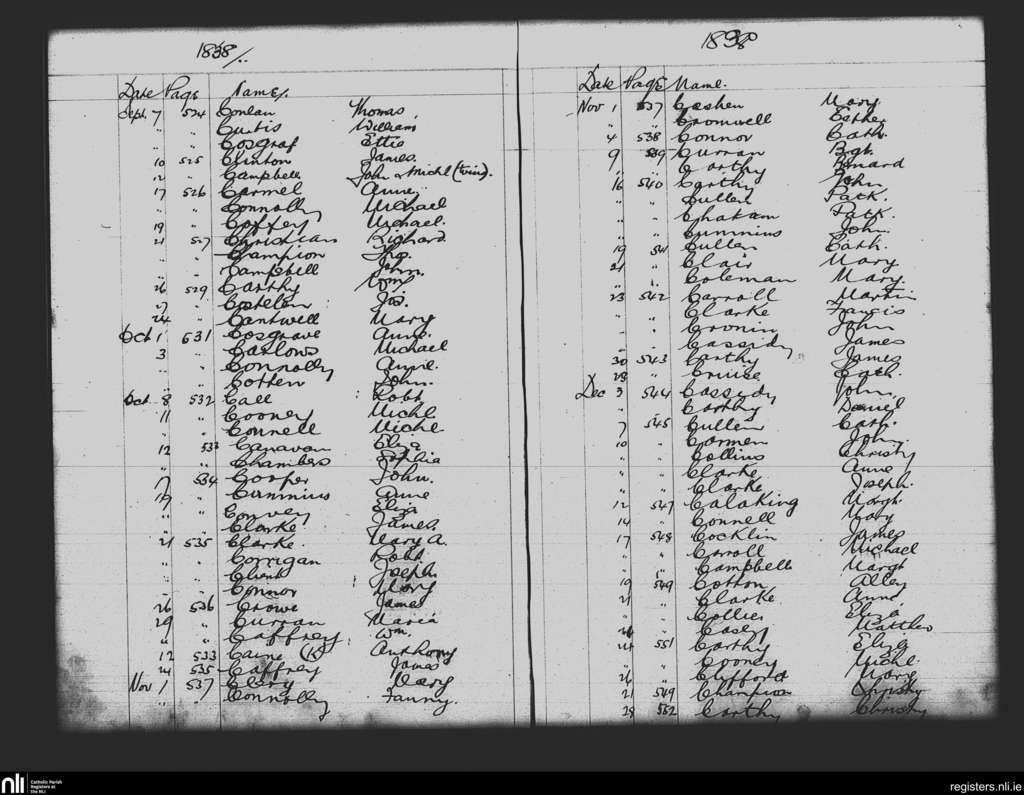 1838/..
Date Page Name.
Sept. 7 524 Conlan Thomas
" " Curtis William
" " Cosgraf Ettie
10 525 Clinton James.
12 " Campbell John & Michl (twins).
17 526 Carmel Anne
" " Connolly Michael
19 " Coffey Michael.
21 527 Christian Richard
" " Champion Thos.
" " Campbell John.
26 529 Carthy Wm
27 " Costelen Jos.
24 " Cantwell Mary
Oct 1 531 Cosgrave Anne.
3 " Caslows Michael
" " Connolly Anne.
" " Cotten John.
Oct. 8 532 Call Robt
11 " Cooney Michl
" " Connell Michl
12 533 Canavan Eliza
" " Chambers Sophia
17 534 Cooper John.
19 " Cummins Anne
" " Convey Eliza
" " Clarke James.
21 535 Clarke. Mary A.
" " Corrigan Robt
" " Client Joseph
" " Connor Mary
26 536 Crowe James
29 " Curran Maria
" " Caffrey Wm.
12 533 Caine (K) Anthony
24 535 Caffrey James
Nov 1 537 Clary Mary
" " Connolly Fanny.
1838
Date Page Name.
Nov 1 537 Cashen Mary
" " Cromwell Esther
4 538 Connor Cath.
9 539 Curran Bgt.
" " Carthy Bernard
16 540 Carthy John
" " Cullen Patk.
" " Chatam Patk.
" " Cummins John
19 541 Cullen Cath.
21 " Clair Mary
" " Coleman Mary.
23 542 Carroll Martin
" " Clarke Francis
" " Cronin John
" " Cassidy James
30 543 Carthy James
28 " Cruise Cath.
Dec 3 544 Cassidy John
" " Carthy Daniel
7 545 Cullen Cath.
10 " Carmen John
" " Collins Christy
" " Clarke Anne
" " Clarke Joseph.
12 547 Calaking Margt
14 " Connell Mary
17 548 Cocklin James
" " Carroll Michael
" " Campbell Margt
19 549 Cotton Alley
21 " Clarke Anne
" " Collier Eliza
" Casey Matthew
24 551 Carthy Eliza
" " Cooney Michl
26 " Clifford Mary
21 549 Champion
28 552 Carthy Christy
nli Catholic Parish
Registers at
the NLI
registers.nli.ie